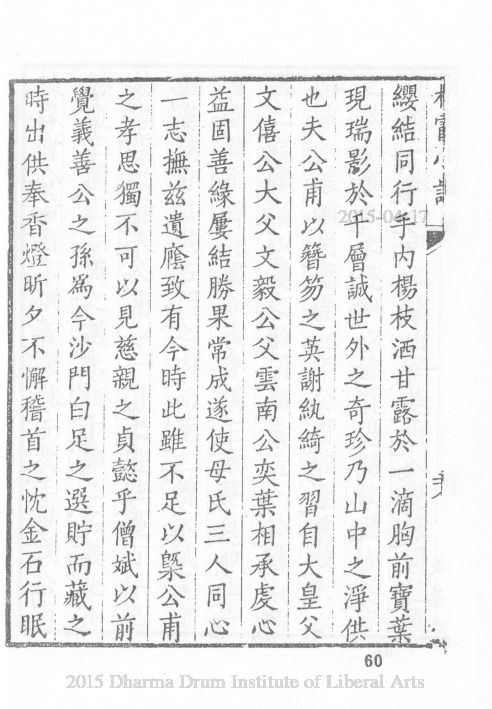 纓結同行手內楊枝洒甘露於一滴胸前寶葉
現瑞影於千層誠世外之奇珍乃山中之淨供
也夫公甫以簪笏之英謝紈綺之習自大皇父
文僖公大父文毅公父雲南公奕葉相承虔心
益固善緣屢結勝果常成遂使母氏三人同心
一志撫茲遺廕致有今時此雖不足以槩公甫
之孝思獨不可以見慈親之貞懿乎僧斌以前
覺義善公之孫為今沙門白足之選貯而藏之
時出供奉香燈昕夕不懈稽首之忱金石行眠
2015-04-17
60
2015 Dharma Drum Institute of Liberal Arts